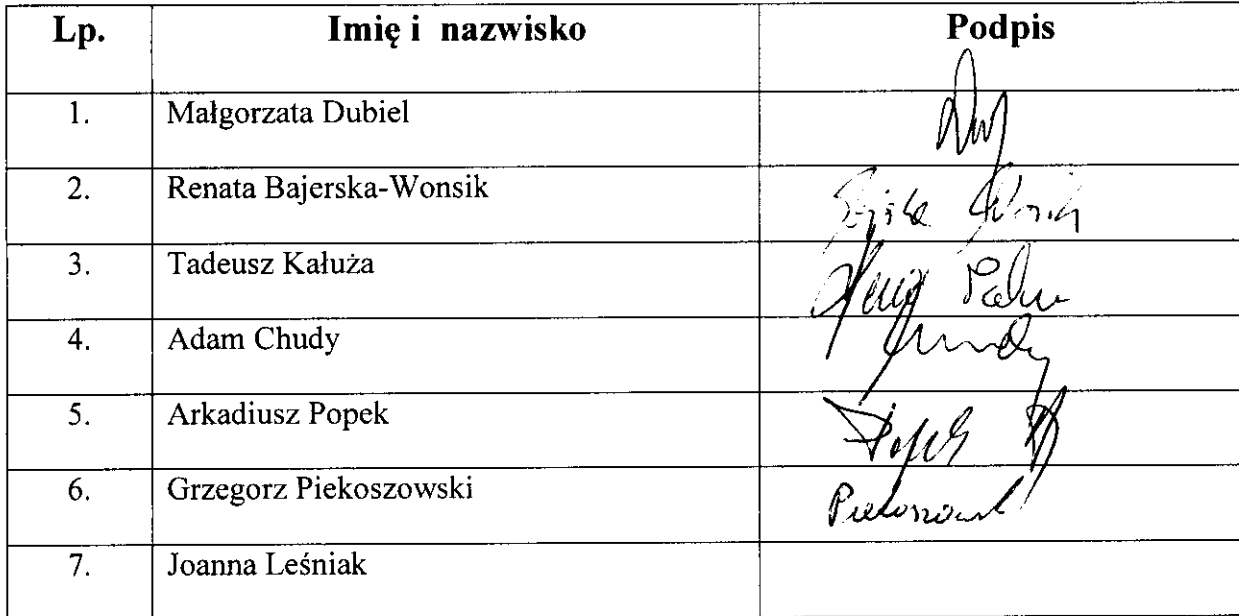 Lp. Imię i nazwisko Podpis
1. Małgorzata Dubiel
2. Renata Bajerska-Wonsik
3. Tadeusz Kałuża
4. Adam Chudy
5. Arkadiusz Popek
6. Grzegorz Piekoszowski
7. Joanna Leśniak